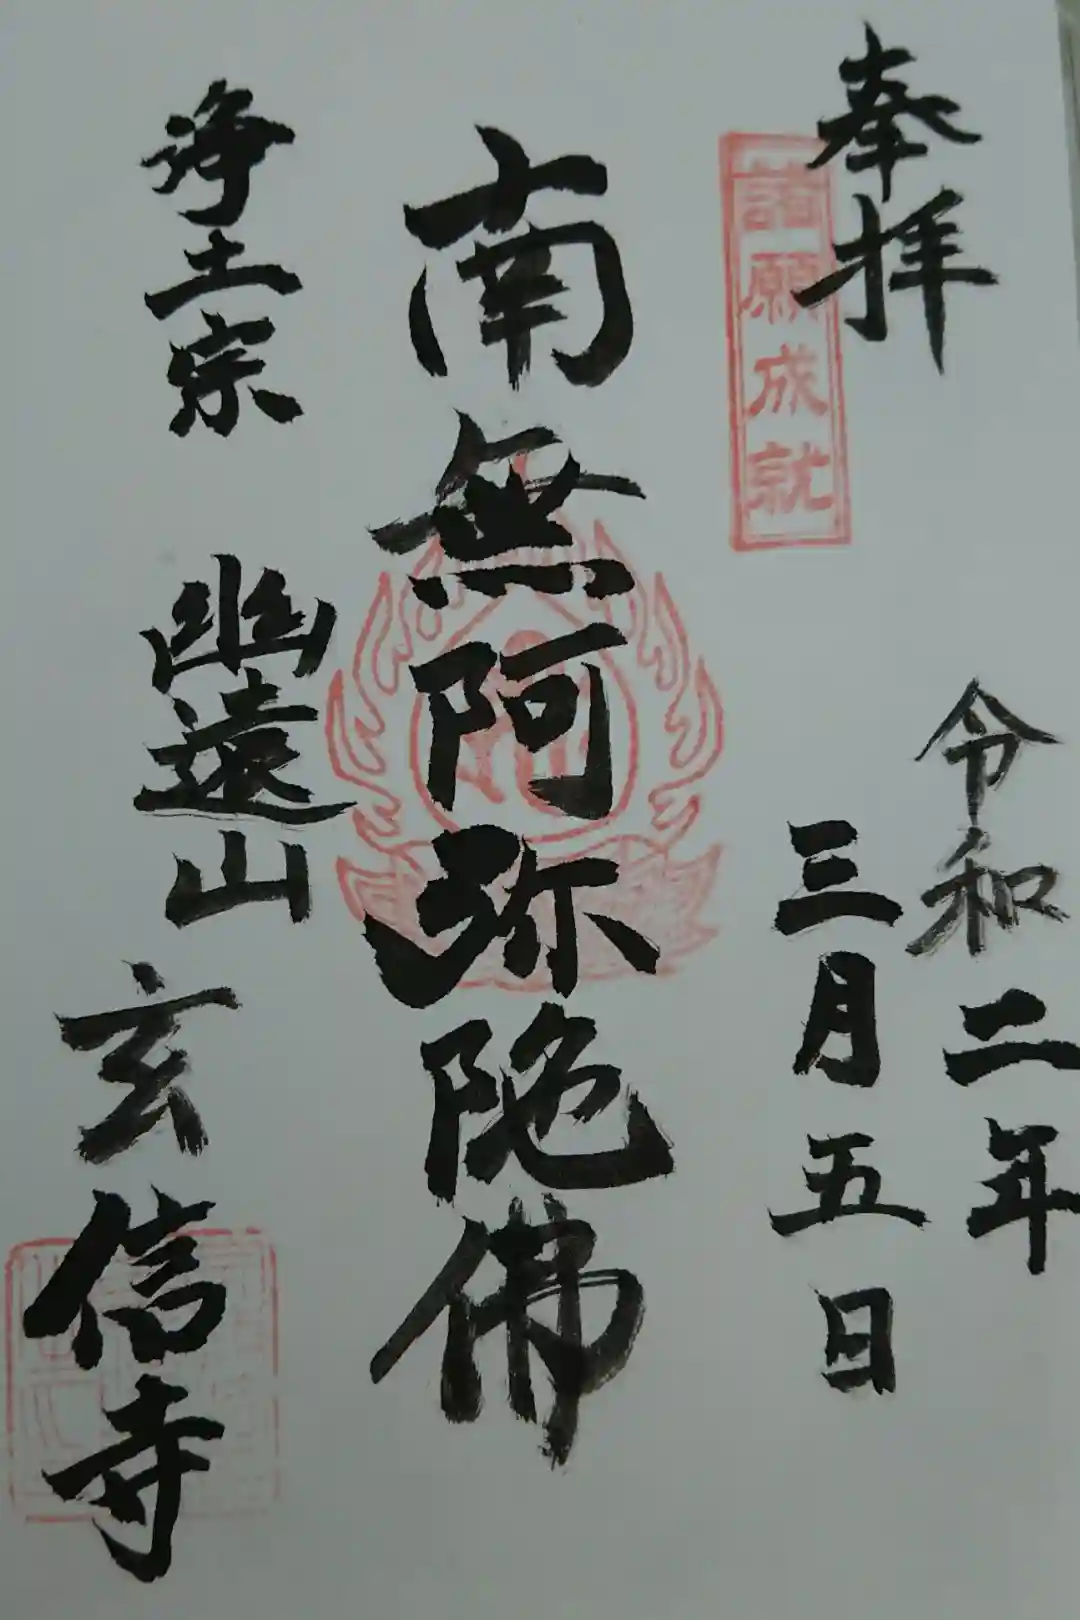 奉拝
諸願成就
令和二年
三月五日
南無阿弥陀佛
浄土宗
幽遠山
玄信寺